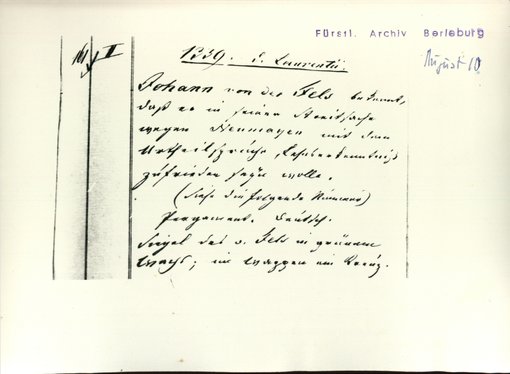 Fürstl. Archiv Berleburg
August 10
II
1339. s. Laurentii.
Johann von der Fels bekennt,
daß er in seiner Streitsache
wegen Neumagen mit dem
Urtheilspruche, Lehnserkenntniß
zufrieden seyn wolle.
(siehe die folgende Nummer)
Pergament. Deutsch.
Siegel des v. Fels in grünem
Wachs; im Wappen ein Kreuz.